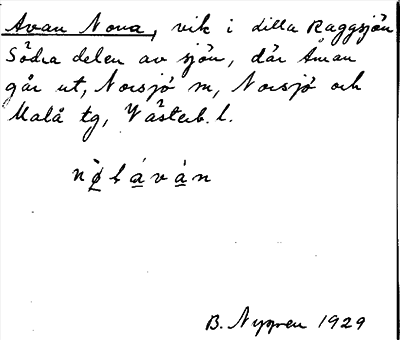 Avan Nova, vik i Lilla Raggsjön
Södra delen av sjön, där åman
går ut, Norsjö sn, Norsjö och
Malå tg, Västerb. l.
B. Nygren 1929